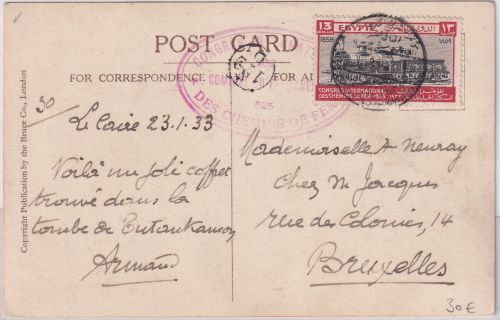 POST CARD
FOR CORRESPONDENCE
FOR AD
Copyright Publication by the Bruge Co., London
30
Le Caire 23.1.33
Voilà un joli coffret
trouvé dans la
tombe de Tutankamon
Armand
CONGR
COM
DES CHEMINS DE FER
13
MILLS
EGYPTE
١٣
1859
١٨٥٩
CONGRES INTERNATIONAL
DES CHEMINS DE FER-1933
Mademoiselle A Neuray
Chez M. Jacques
rue des Colonies, 14
Bruxelles
30€